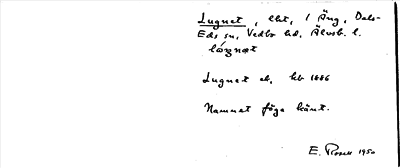 Lugnet, lht, 1 Äng, Dals-
Eds sn, Vedbo hd, Älvsb. l.
Lugnet eb, hb 1886
Namnet föga känt.
E. Rosell 1950